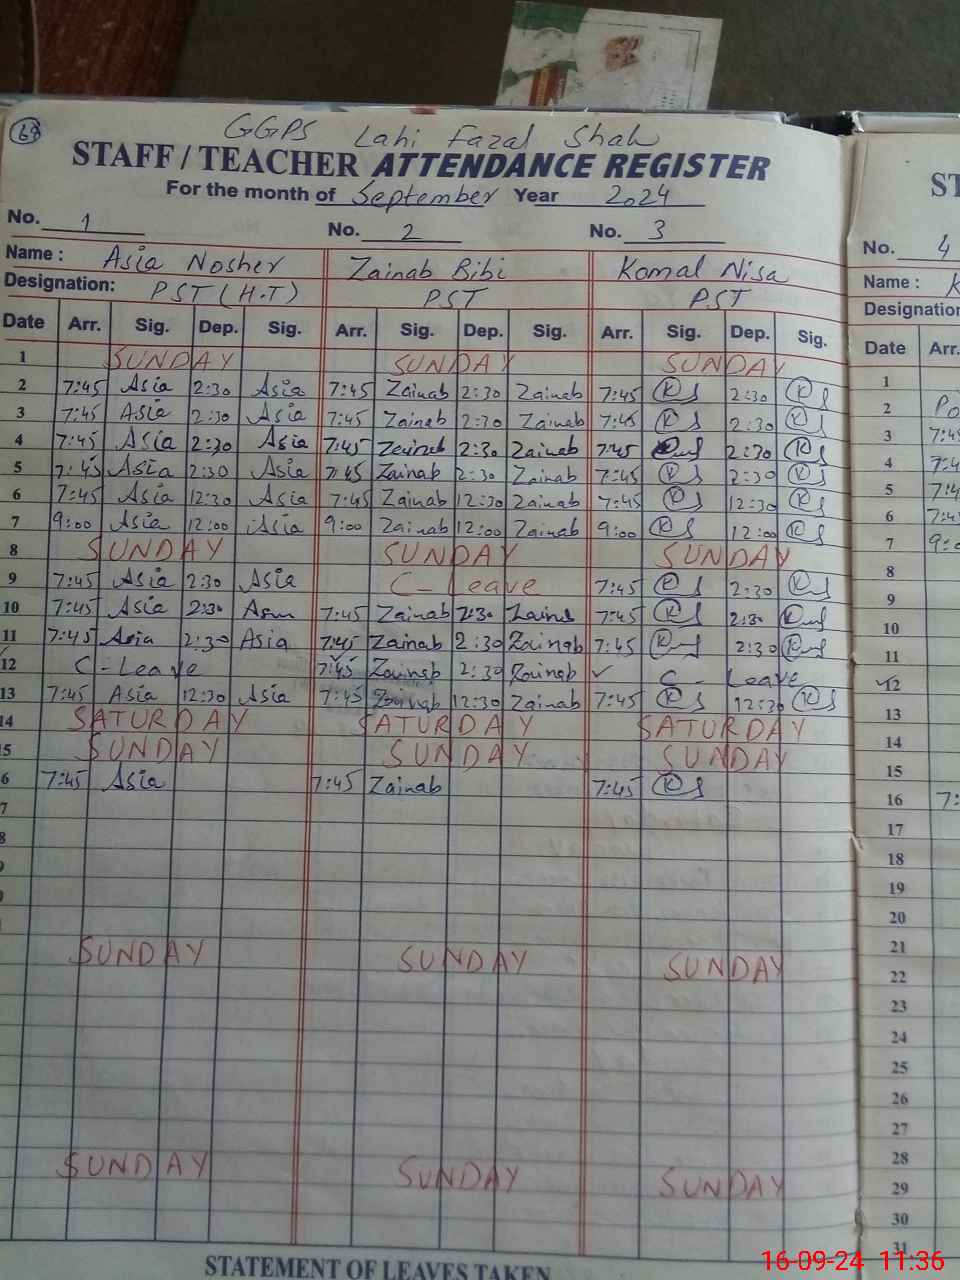 68
GGPS Lahi Fazal Shah
STAFF / TEACHER ATTENDANCE REGISTER
For the month of September Year 2024
No. 1 No. 2 No. 3
Name : Asia Nosher Zainab Bibi Komal Nisa
Designation: PST (H.T) PST PST
Date Arr. Sig. Dep. Sig. Arr. Sig. Dep. Sig. Arr. Sig. Dep. Sig.
1 SUNDAY SUNDAY SUNDAY
2 7:45 Asia 2:30 Asia 7:45 Zainab 2:30 Zainab 7:45 2:30
3 7:45 Asia 2:30 Asia 7:45 Zainab 2:30 Zainab 7:45 2:30
4 7:45 Asia 2:30 Asia 7:45 Zainab 2:30 Zainab 7:45 2:30
5 7:45 Asia 2:30 Asia 7:45 Zainab 2:30 Zainab 7:45 2:30
6 7:45 Asia 12:30 Asia 7:45 Zainab 12:30 Zainab 7:45 12:30
7 9:00 Asia 12:00 Asia 9:00 Zainab 12:00 Zainab 9:00 12:00
8 SUNDAY SUNDAY SUNDAY
9 7:45 Asia 2:30 Asia C-Leave 7:45 2:30
10 7:45 Asia 2:30 7:45 Zainab 2:30 7:45 2:30
11 7:45 Asia 2:30 Asia 7:45 Zainab 2:30 Zainab 7:45 2:30
12 C-Leave 7:45 Zainab 2:30 Zainab C- Leave
13 7:45 Asia 12:30 Asia 7:45 Zainab 12:30 Zainab 7:45 12:30
14 SATURDAY SATURDAY SATURDAY
5 SUNDAY SUNDAY SUNDAY
6 7:45 Asia 7:45 Zainab 7:45
7
8
SUNDAY SUNDAY SUNDAY
SUNDAY SUNDAY SUNDAY
STATEMENT OF LEAVES TAKEN
ST
No. 4
Name : K
Designation
Date Arr.
1
2
3 7:4
4 7:4
5 7:4
6 7:4
7 9:
8
9
10
11
12
13
14
15
16 7:
17
18
19
20
21
22
23
24
25
26
27
28
29
30
31
16-09-24 11:36